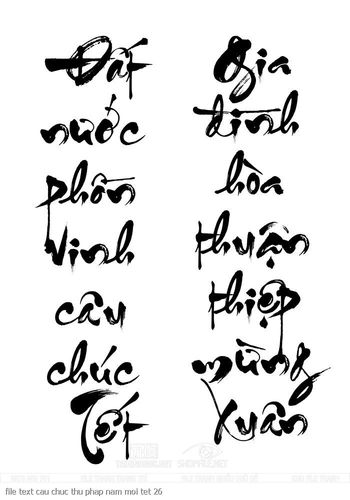 Đất
nước
phồn
vinh
câu
chúc
Tết
Gia
đình
hòa
thuận
thiệp
mừng
Xuân
file text cau chuc thu phap nam moi tet 26